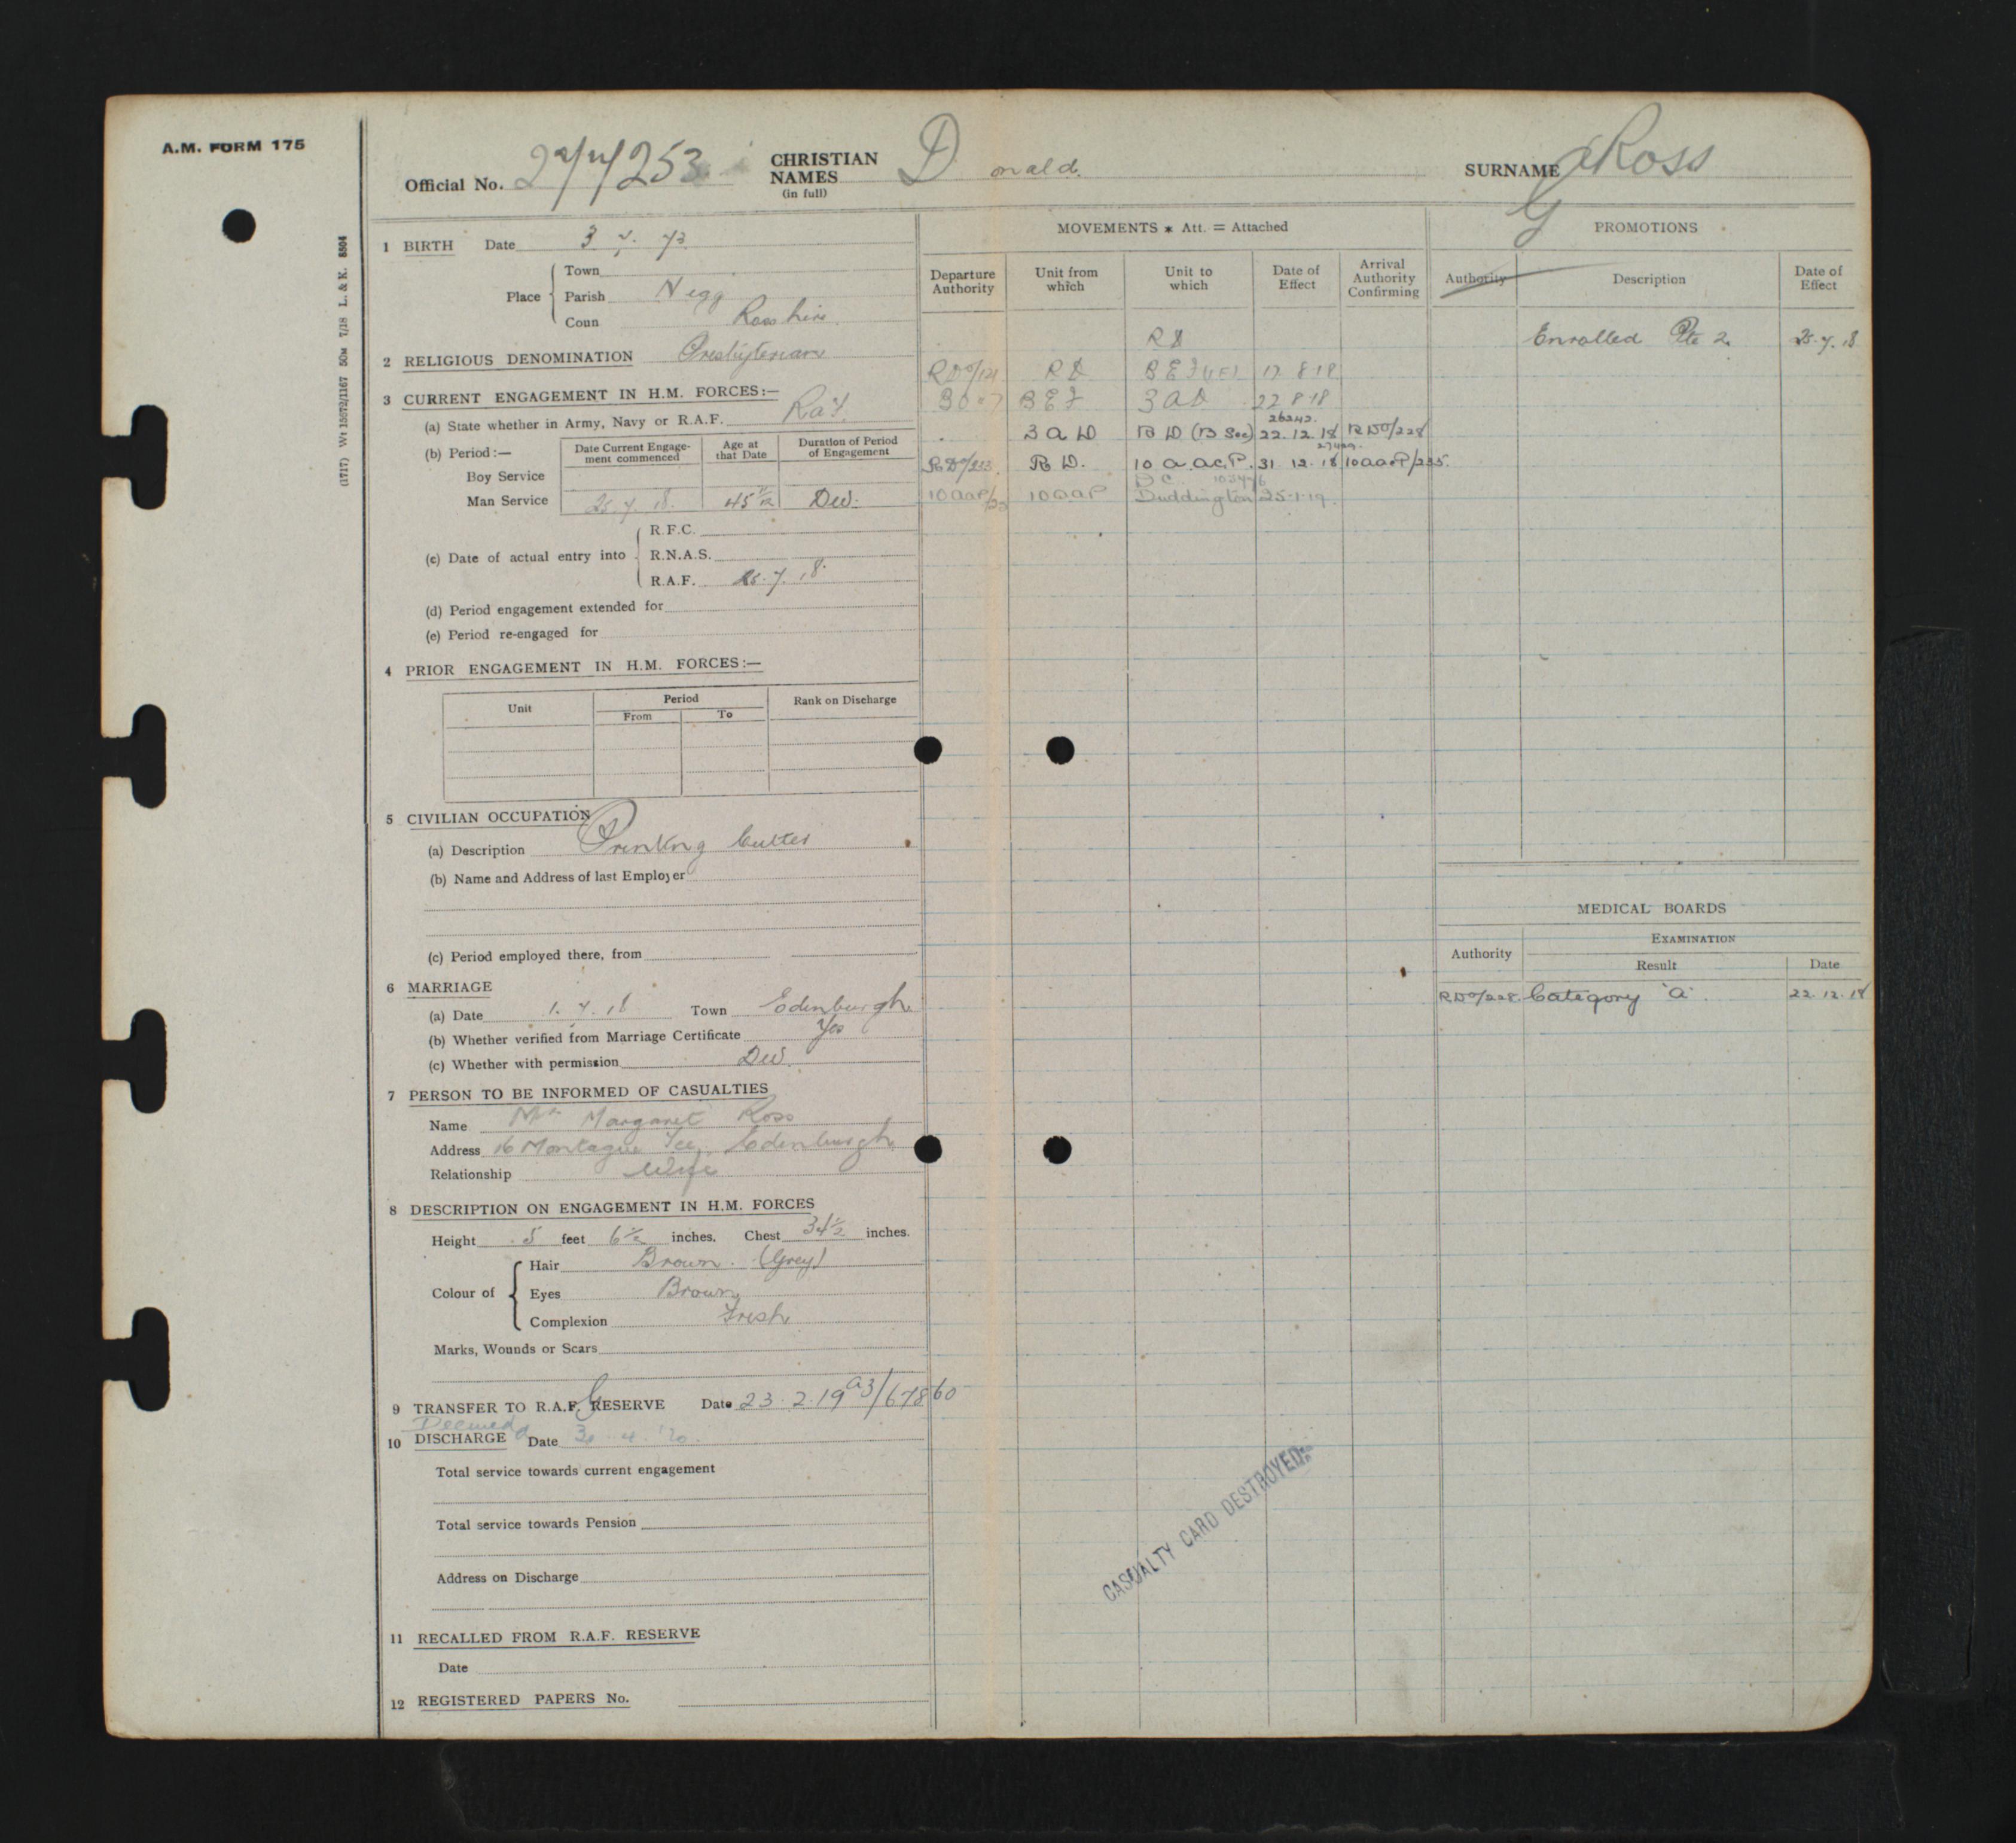 A.M. FORM 175
(1717) Wt 15672/1167 50M 7/18 L. & K. 8504
Official No. 277253 CHRISTIAN NAMES (in full) Donald. SURNAME Ross
G
1 BIRTH Date 3
Place
Town
Parish Nigg
Coun Rosshire.
2 RELIGIOUS DENOMINATION Presbyterian
3 CURRENT ENGAGEMENT IN H.M. FORCES:—
(a) State whether in Army, Navy or R.A.F. Raf.
(b) Period:— Date Current Engage-ment commenced Age at that Date Duration of Period of Engagement
Boy Service
Man Service 25.7.18. 45 DW.
(c) Date of actual entry into
R.F.C.
R.N.A.S.
R.A.F. 25.7.18.
(d) Period engagement extended for
(e) Period re-engaged for
4 PRIOR ENGAGEMENT IN H.M. FORCES:—
Unit Period Rank on Discharge
From To
5 CIVILIAN OCCUPATION
(a) Description Cutter
(b) Name and Address of last Employer
(c) Period employed there, from
6 MARRIAGE
(a) Date Town Edinburgh
(b) Whether verified from Marriage Certificate Yes
(c) Whether with permission DW.
7 PERSON TO BE INFORMED OF CASUALTIES
Name Mrs Margaret Ross
Address 16 Montague Tce, Edenburgh
Relationship Wife
8 DESCRIPTION ON ENGAGEMENT IN H.M. FORCES
Height 5 feet 6½ inches. Chest 34½ inches.
Colour of
Hair Brown. (Grey)
Eyes Brown
Complexion Fresh
Marks, Wounds or Scars
9 TRANSFER TO R.A.F. G RESERVE Date 23.2.19 a3/67860
Deemed
10 DISCHARGE d Date 30.4.20.
Total service towards current engagement
Total service towards Pension
Address on Discharge
11 RECALLED FROM R.A.F. RESERVE
Date
12 REGISTERED PAPERS No.
MOVEMENTS * Att. = Attached
Departure Authority Unit from which Unit to which Date of Effect Arrival Authority Confirming
RD
RDO/121 RD BEF 17 8 18
BEF 3AD 22 8 18
26242.
3 A D R D (B Sec) 22.12.18 RDO/228
RDO/233. R D. 10 a.ac.P. 31 12.18 10aaP/235.
DC.
10aaP/23 10aaP Duddington 25-1-19.
CASUALTY CARD DESTROYED.
PROMOTIONS
Authority Description Date of Effect
Enrolled Pte 2. 25.7.18
MEDICAL BOARDS
Authority EXAMINATION
Result Date
RDO/228. Category 'A'. 22.12.18